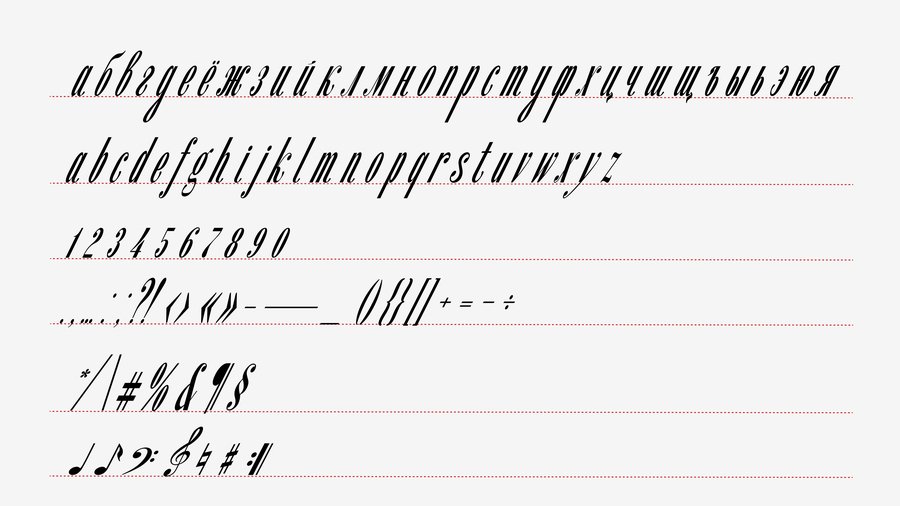 абвгдеёжзийклмнопрстуфхцчшщъыьэюя
abcdefghijklmnopqrstuvwxyz
1234567890
.,…:;?!‹›«»-—_(){}[]+=−÷
*/|\#%&¶§
♩♪𝄢𝄞♮♯𝄇